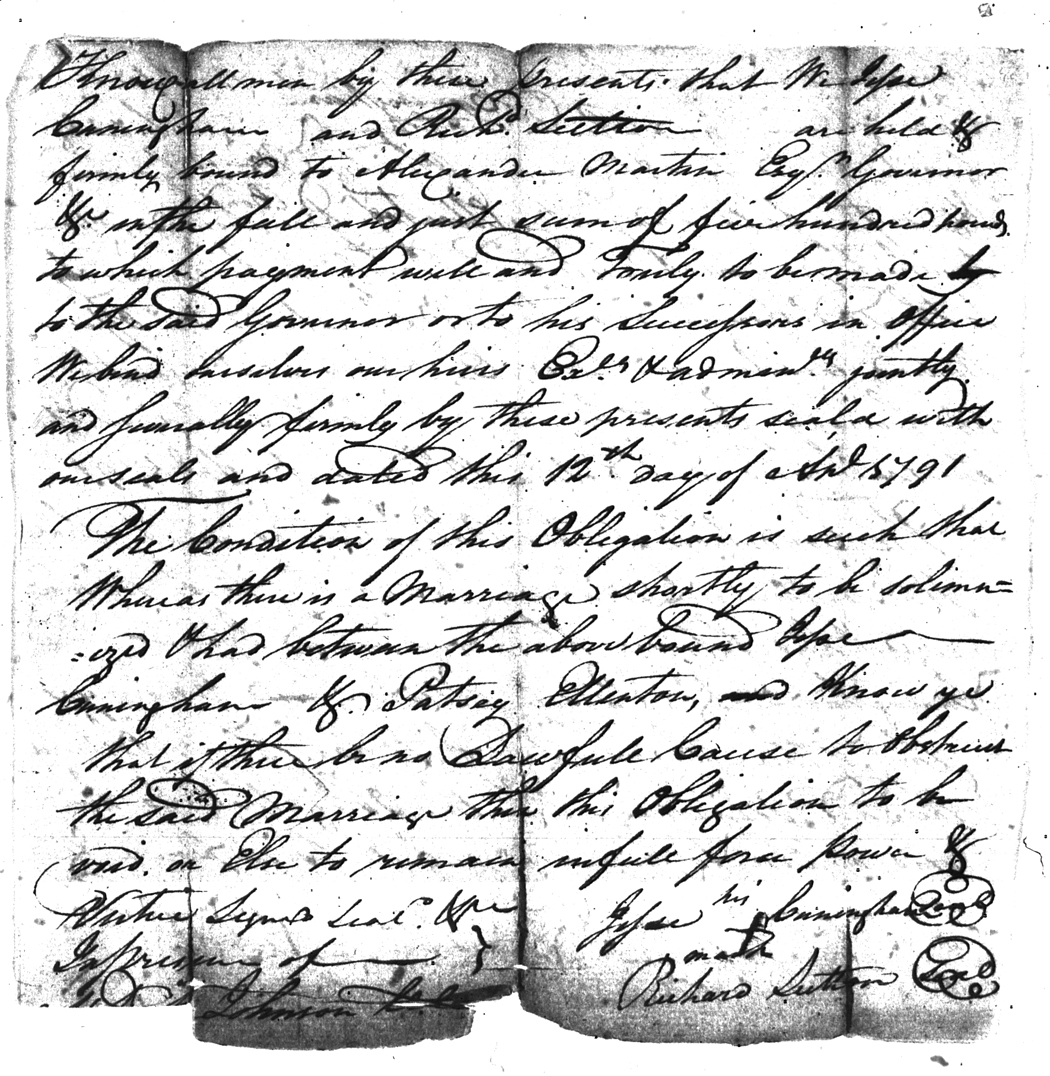 Know all men by these presents that We Jesse
Cuningham and Richd. Sutton are held &
firmly bound to Alexander Martin Esqr. Governor
&c in the full and just sum of five hundred pounds
to which payment well and Truly to be made
to the said Governor or to his Successors in office
We bind ourselves our heirs Exrs & adminrs jointly
and severally firmly by these presents seald with
our seals and dated this 12th Day of Apl 1791
The Condition of this Obligation is such that
Whereas there is a Marriage shortly to be solemn=
=ized & had between the above bound Jesse
Cuningham & Patsey Ellenton, and Know ye
that if there be no Lawfull Cause to Obstruct
the said Marriage then this Obligation to be
void. or Else to remain in full force Power &
Virtue Signd Seald. &c
In Presence of
Jesse his mark Cuningham Seal
Richard Sutton Seal
Johnson